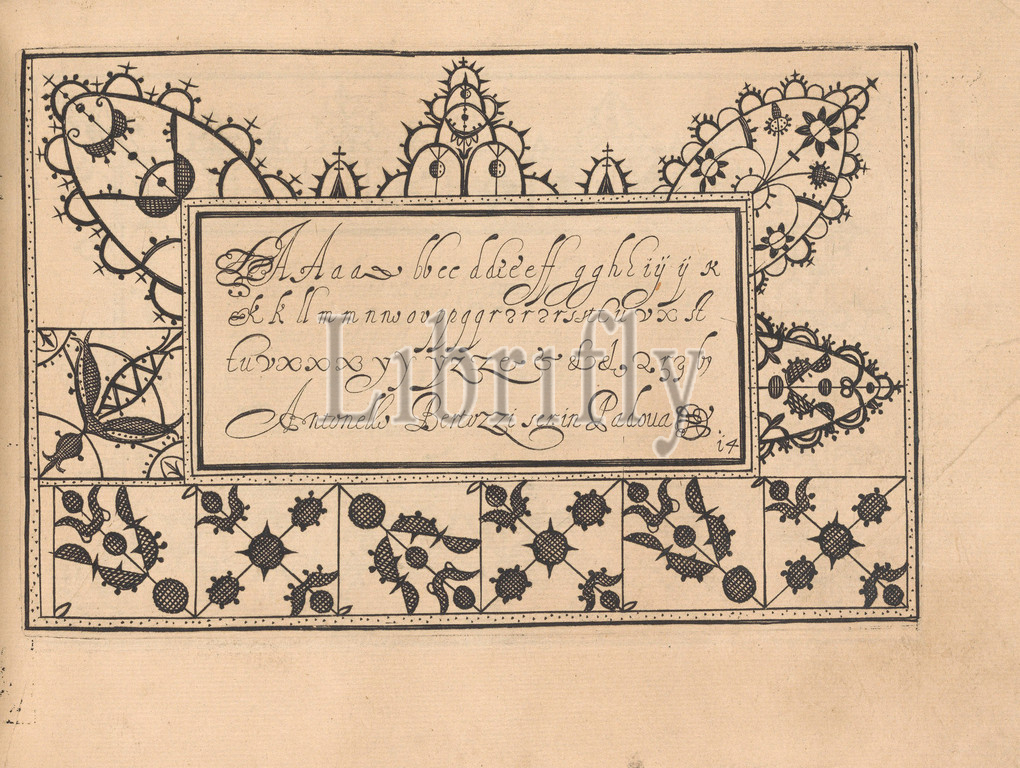 A A A a a bb cc dd e e ff g g h h i ij ij K
K k ll m m n n w o v q p g g r 2 r 2 r s s st t u v x A
tu v x x x x y y y z z e & & d, 2 z 3 h
Antonello Bertozzi ser: in Padoua
14
Librifly